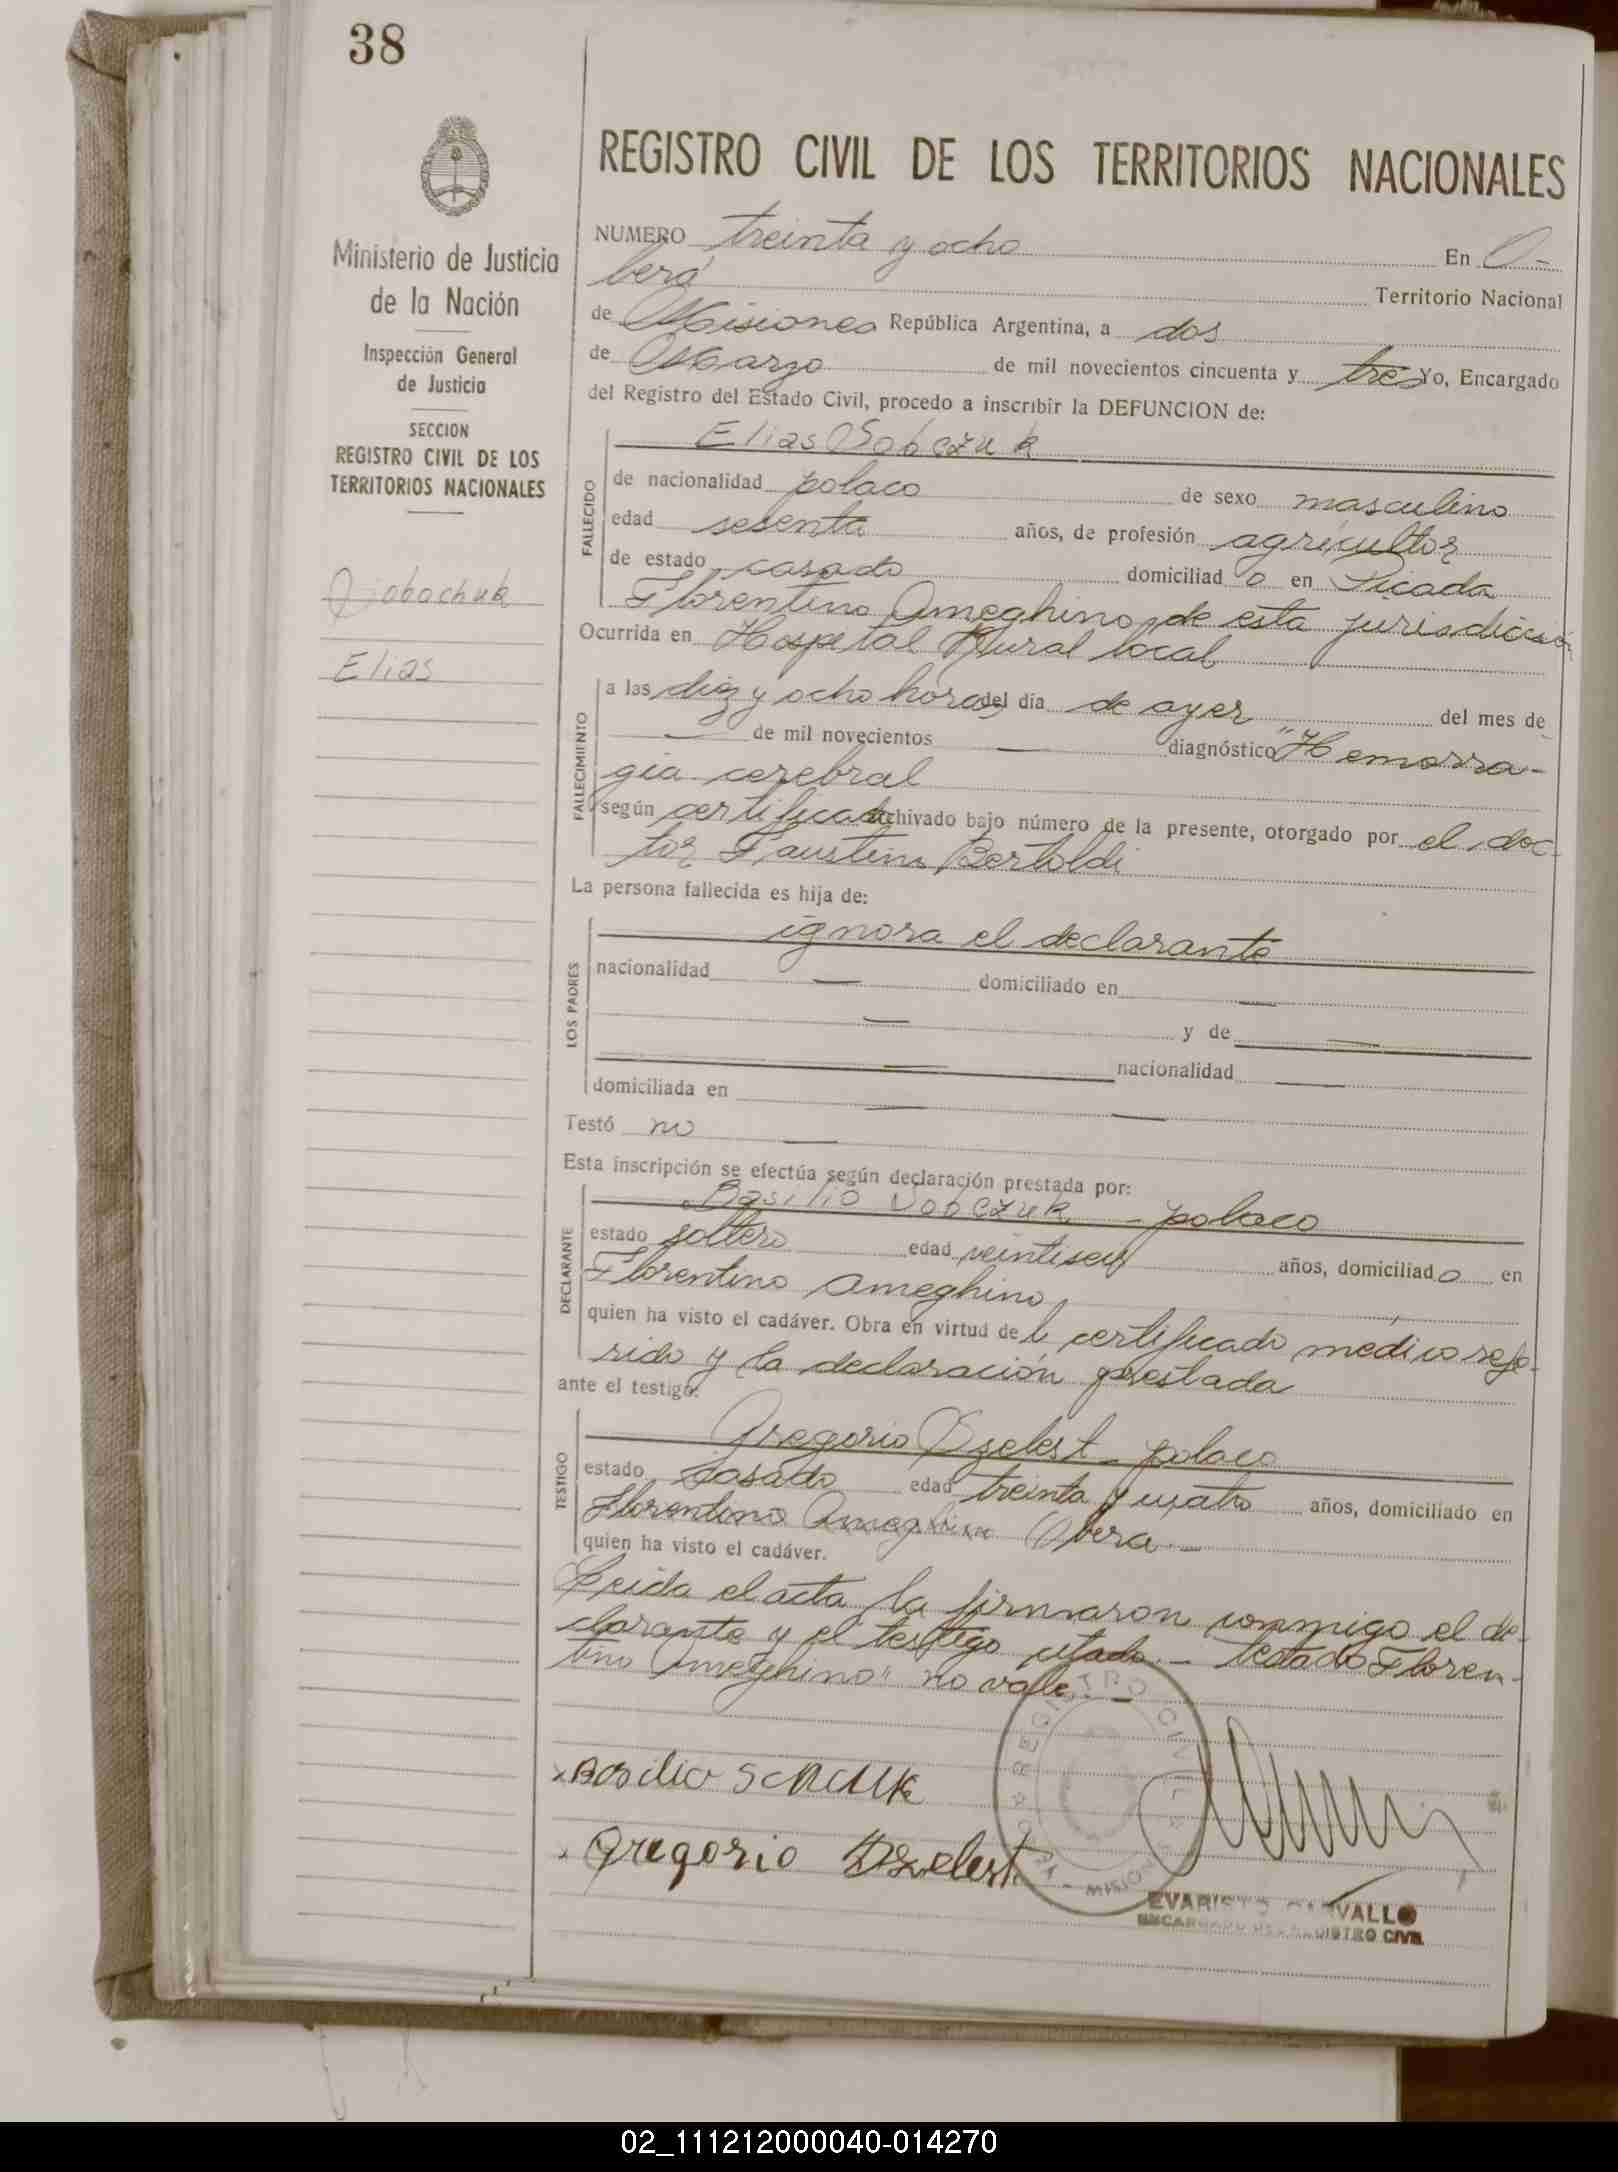 38
REGISTRO CIVIL DE LOS TERRITORIOS NACIONALES
Ministerio de Justicia
de la Nación
Inspección General
de Justicia
SECCION
REGISTRO CIVIL DE LOS
TERRITORIOS NACIONALES
Elias
NUMERO treinta y ocho En O-
berá Territorio Nacional
de Misiones República Argentina, a dos
de Marzo de mil novecientos cincuenta y tres Yo, Encargado
del Registro del Estado Civil, procedo a inscribir la DEFUNCION de:
FALLECIDO
Elias Sobczuk
de nacionalidad polaco de sexo masculino
edad sesenta años, de profesión agricultor
de estado casado domiciliad o en Picada
Florentino Ameghino, de esta jurisdicción
Ocurrida en Hospital Rural local
FALLECIMIENTO
a las diez y ocho horas del día de ayer del mes de
— de mil novecientos — diagnóstico "Hemorra-
gia cerebral
según certificado archivado bajo número de la presente, otorgado por el doc-
tor Faustino Bertoldi
La persona fallecida es hija de:
LOS PADRES
ignora el declarante
nacionalidad — domiciliado en —
— y de —
— nacionalidad —
domiciliada en — —
Testó no —
Esta inscripción se efectúa según declaración prestada por:
DECLARANTE
Basilio Sobczuk - polaco
estado soltero edad veintiseis años, domiciliad o en
Florentino Ameghino,
quien ha visto el cadáver. Obra en virtud de l certificado médico refe-
rido y la declaración prestada
ante el testigo:
TESTIGO
Gregorio Dzelest - polaco
estado casado edad treinta y cuatro años, domiciliado en
Florentino Ameghino Oberá.—
quien ha visto el cadáver.
Leida el acta la firmaron conmigo el de-
clarante y el testigo citado.- Testado "Floren-
tino Ameghino" no vale.—
REGISTRO CIVIL
Basilio
Gregorio Dzelest
EVARISTO CARVALLO
ENCARGADO DEL REGISTRO CIVIL
02_111212000040-014270